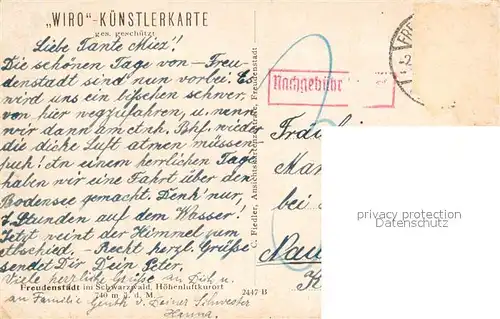 „WIRO“-KÜNSTLERKARTE
ges. geschützt
Liebe Tante Miez!
Die schönen Tage von Freu-
denstadt sind nun vorbei. Es
wird uns ein bisschen schwer,
von hier wegzufahren, u. wenn
wir dann am Bhf. wieder
die dicke Luft atmen müssen
puh! An einem herrlichen Tage
haben wir eine Fahrt über den
Bodensee gemacht. Denk' nur,
7 Stunden auf dem Wasser!
Jetzt weint der Himmel zum
Abschied. – Recht herzl. Grüße
sendet Dir Dein Peter.
Viele herzliche Grüße an Dich u.
an Familie v. Deiner Schwester
Hanna.
Freudenstadt im Schwarzwald, Höhenluftkurort
740 m ü. d. M.
2447 B
C. Fiedler, Ansichtskartenzentrale, Freudenstadt
Nachgebühr
FRE
Mar
bei
Nau
privacy protection
watermark